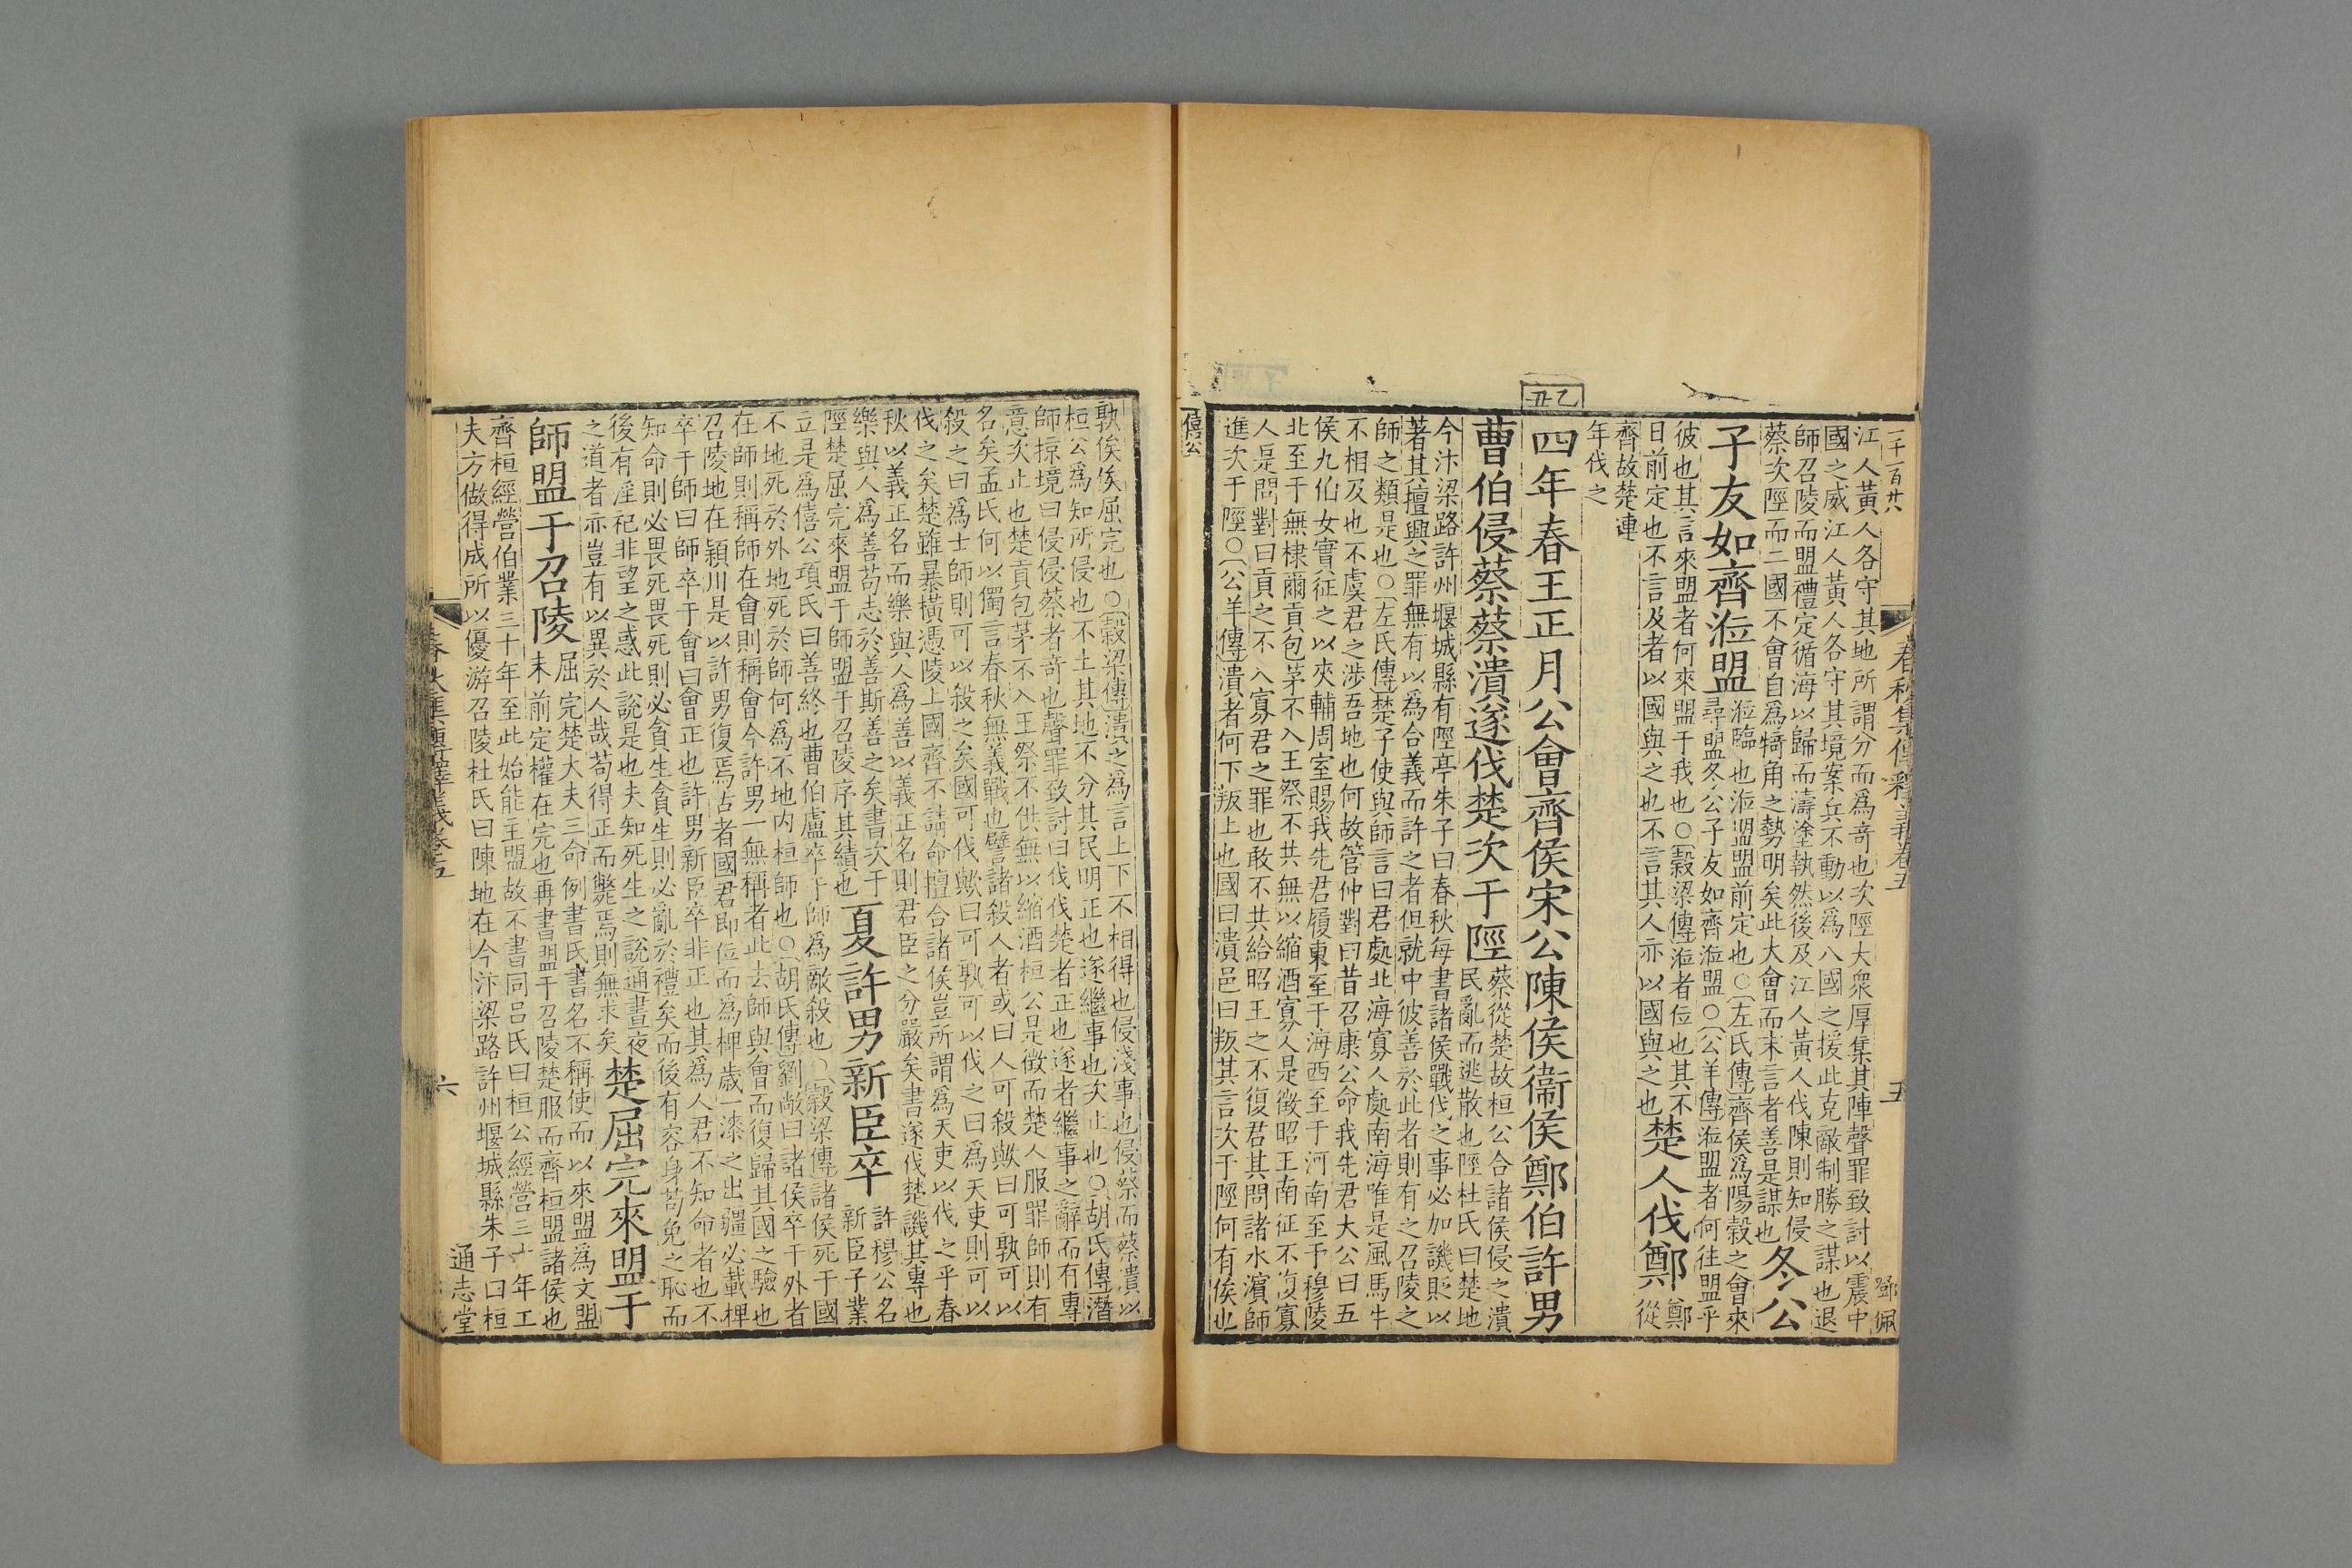 一千一百廿六
春秋集傳釋義卷五
五
鄧佩
江人黃人各守其地所謂分而為奇也次陘大衆厚集其陣聲罪致討以震中
國之威江人黃人各守其境案兵不動以為八國之援此克敵制勝之謀也退
師召陵而盟禮定循海以歸而濤塗執然後及江人黃人伐陳則知侵
蔡次陘而二國不會自為犄角之勢明矣此大會而末言者善是謀也
冬公
子友如齊涖盟
涖臨也涖盟盟前定也○左氏傳齊侯為陽榖之會來
尋盟冬公子友如齊涖盟○公羊傳涖盟者何往盟乎
彼也其言來盟者何來盟于我也○榖梁傳涖者位也其不
日前定也不言及者以國與之也不言其人亦以國與之也
楚人伐鄭
鄭從
齊故楚連
年伐之
乙丑
四年春王正月公會齊侯宋公陳侯衞侯鄭伯許男
曹伯侵蔡蔡潰遂伐楚次于陘
蔡從楚故桓公合諸侯侵之潰
民亂而逃散也陘杜氏曰楚地
今汴梁路許州堰城縣有陘亭朱子曰春秋每書諸侯戰伐之事必加譏貶以
著其擅興之罪無有以為合義而許之者但就中彼善於此者則有之召陵之
師之類是也○左氏傳楚子使與師言曰君處北海寡人處南海唯是風馬牛
不相及也不虞君之涉吾地也何故管仲對曰昔召康公命我先君大公曰五
侯九伯女實征之以夾輔周室賜我先君履東至于海西至于河南至于穆陵
北至于無棣爾貢包茅不入王祭不共無以縮酒寡人是徵昭王南征不復寡
人是問對曰貢之不入寡君之罪也敢不共給昭王之不復君其問諸水濱師
進次于陘○公羊傳潰者何下叛上也國曰潰邑曰叛其言次于陘何有俟也
僖公
孰俟俟屈完也○榖梁傳潰之為言上下不相得也侵淺事也侵蔡而蔡潰以
桓公為知所侵也不土其地不分其民明正也遂繼事也次止也○胡氏傳潛
師掠境曰侵侵蔡者奇也聲罪致討曰伐伐楚者正也遂者繼事之辭而有專
意次止也楚貢包茅不入王祭不供無以縮酒桓公是徵而楚人服罪師則有
名矣孟氏何以獨言春秋無義戰也譬諸殺人者或曰人可殺歟曰可孰可以
殺之曰為士師則可以殺之矣國可伐歟曰可孰可以伐之曰為天吏則可以
伐之矣楚雖暴橫憑陵上國齊不請命擅合諸侯豈所謂為天吏以伐之乎春
秋以義正名而樂與人為善以義正名則君臣之分嚴矣書遂伐楚譏其專也
樂與人為善苟志於善斯善之矣書次于
陘楚屈完來盟于師盟于召陵序其績也
夏許男新臣卒
許穆公名
新臣子業
立是為僖公項氏曰善終也曹伯盧卒于師為敵殺也○榖梁傳諸侯死于國
不地死於外地死於師何為不地内桓師也○胡氏傳劉敞曰諸侯卒于外者
在師則稱師在會則稱會今許男一無稱者此去師與會而復歸其國之驗也
召陵地在潁川是以許男復焉古者國君即位而為椑歲一漆之出疆必載椑
卒于師曰師卒于會曰會正也許男新臣卒非正也其為人君不知命者也不
知命則必畏死畏死則必貪生貪生則必亂於禮矣而後有容身苟免之恥而
後有淫祀非望之惑此說是也夫知死生之說通晝夜
之道者亦豈有以異於人哉苟得正而斃焉則無求矣
楚屈完來盟于
師盟于召陵
屈完楚大夫三命例書氏書名不稱使而以來盟為文盟
未前定權在完也再書盟于召陵楚服而齊桓盟諸侯也
齊桓經營伯業三十年至此始能主盟故不書同呂氏曰桓公經營三十年工
夫方做得成所以優游召陵杜氏曰陳地在今汴梁路許州堰城縣朱子曰桓
六
通志堂